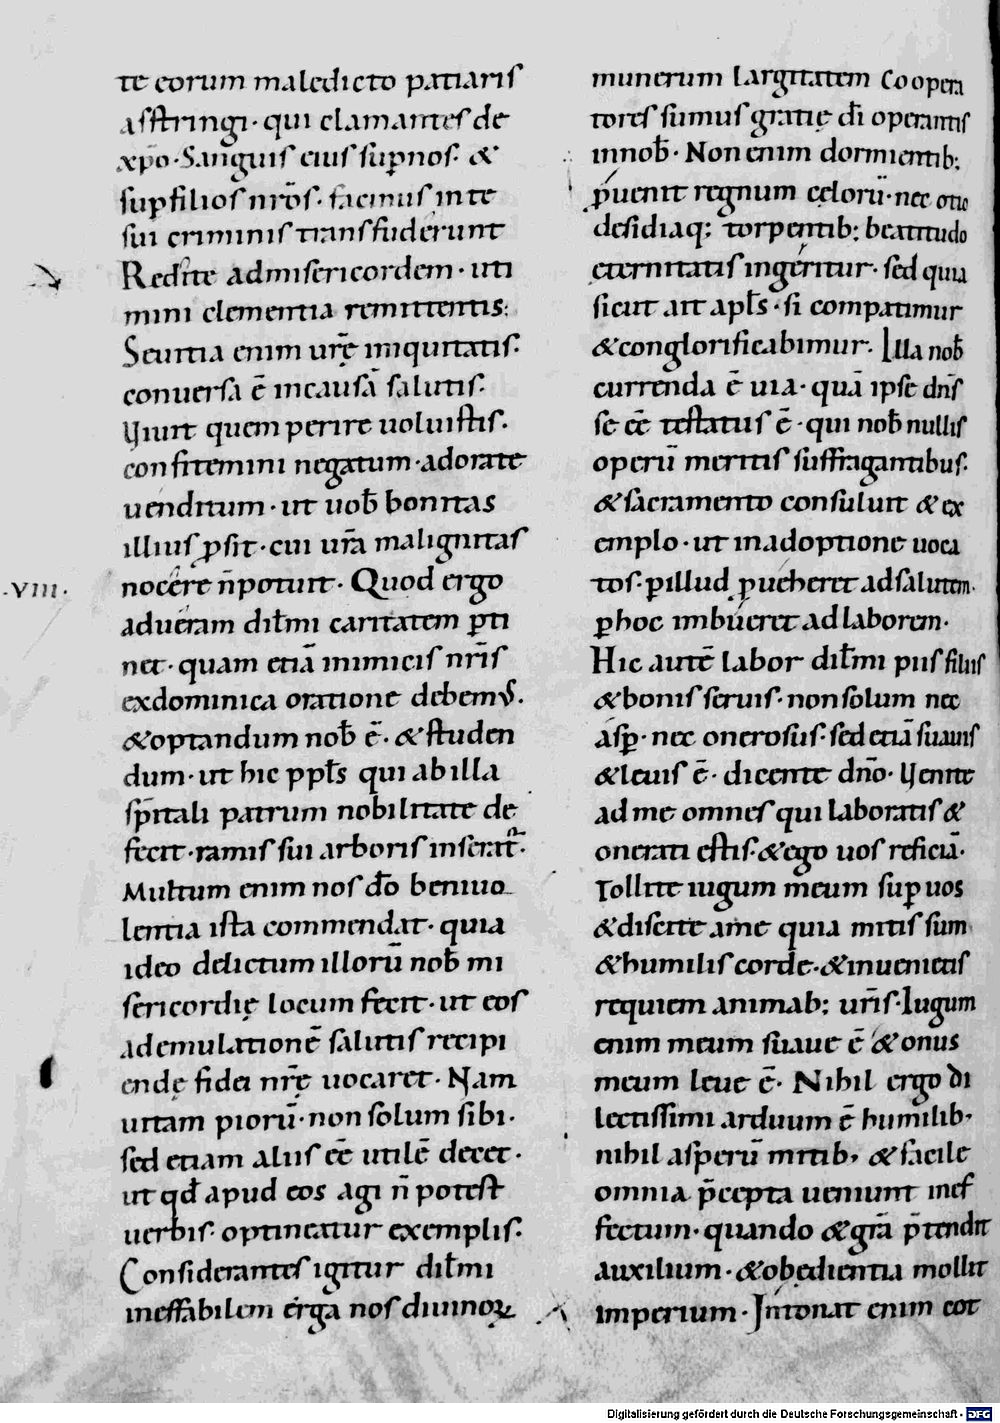 te eorum maledicto patiaris
asstringi· qui clamantes de
xp̄o· Sanguis eius sup̱ nos· &
sup̱ filios nr̄os· facinus in te
sui criminis transfuderunt
Redite ad misericordem· uti
mini clementia remittentis;
Seuitia enim ur̄ę iniquitatis·
conuersa ē in causā salutis·
Uiuit quem perire uoluistis·
confitemini negatum· adorate
uenditum· ut uob̄ bonitas
illius ꝓsit· cui ur̄a malignitas
·VIII·
nocere n̄ potuit· Quod ergo
ad ueram dil̄mi caritatem ꝑti
net· quam etiā inimicis nr̄is
ex dominica oratione debemus·
& optandum nob̄ ē· & studen
dum· ut hic ppl̄s qui ab illa
sp̄itali patrum nobilitate de
fecit· ramis sui arboris inserat᷑·
Multum enim nos dō beniuo
lentia ista commendat· quia
ideo delictum illorū nob̄ mi
sericordię locum fecit· ut eos
ad emulationē salutis recipi
endę fidei nr̄ę uocaret· Nam
uitam piorū· non solum sibi·
sed etiam aliis eē utilē decet·
ut qd̄ apud eos agi n̄ potest
uerbis· optineatur exemplis·
Considerantes igitur dil̄mi
ineffabilem erga nos diuinoꝝ
munerum largitatem Coopera
tores sumus gratię dī operantis
in nob̄· Non enim dormientib;
ꝓuenit regnum celorū· nec otio
desidiaq; torpentib; beatitudo
ęternitatis ingeritur· sed quia
sicut ait apl̄s· si compatimur
& conglorificabimur· Illa nob̄
currenda ē uia· quā ipse dn̄s
se eē testatus ē· qui nob̄ nullis
operū meritis suffragantibus·
& sacramento consuluit & ex
emplo· ut in adoptione uoca
tos· ꝑ illud ꝓueheret ad salutem·
ꝑ hoc imbueret ad laborem·
Hic autē labor dil̄mi piis filiis
& bonis seruis· non solum nec
asꝑ· nec onerosus· sed etiā suauis
& leuis ē· dicente dn̄o· Uenite
ad me omnes qui laboratis &
onerati estis· & ego uos reficiā·
Tollite iugum meum suꝑ uos
& discite a me quia mitis sum
& humilis corde· & inuenietis
requiem animab; ur̄is· Iugum
enim meum suaue ē & onus
meum leue ē· Nihil ergo di
lectissimi arduum ē humilib;
nihil asperū mitib; & facile
omnia p̄cepta ueniunt in ef
fectum· quando & gr̄a p̄tendit
auxilium· & obędientia mollit
imperium· Intonat enim cot
Digitalisierung gefördert durch die Deutsche Forschungsgemeinschaft · DFG